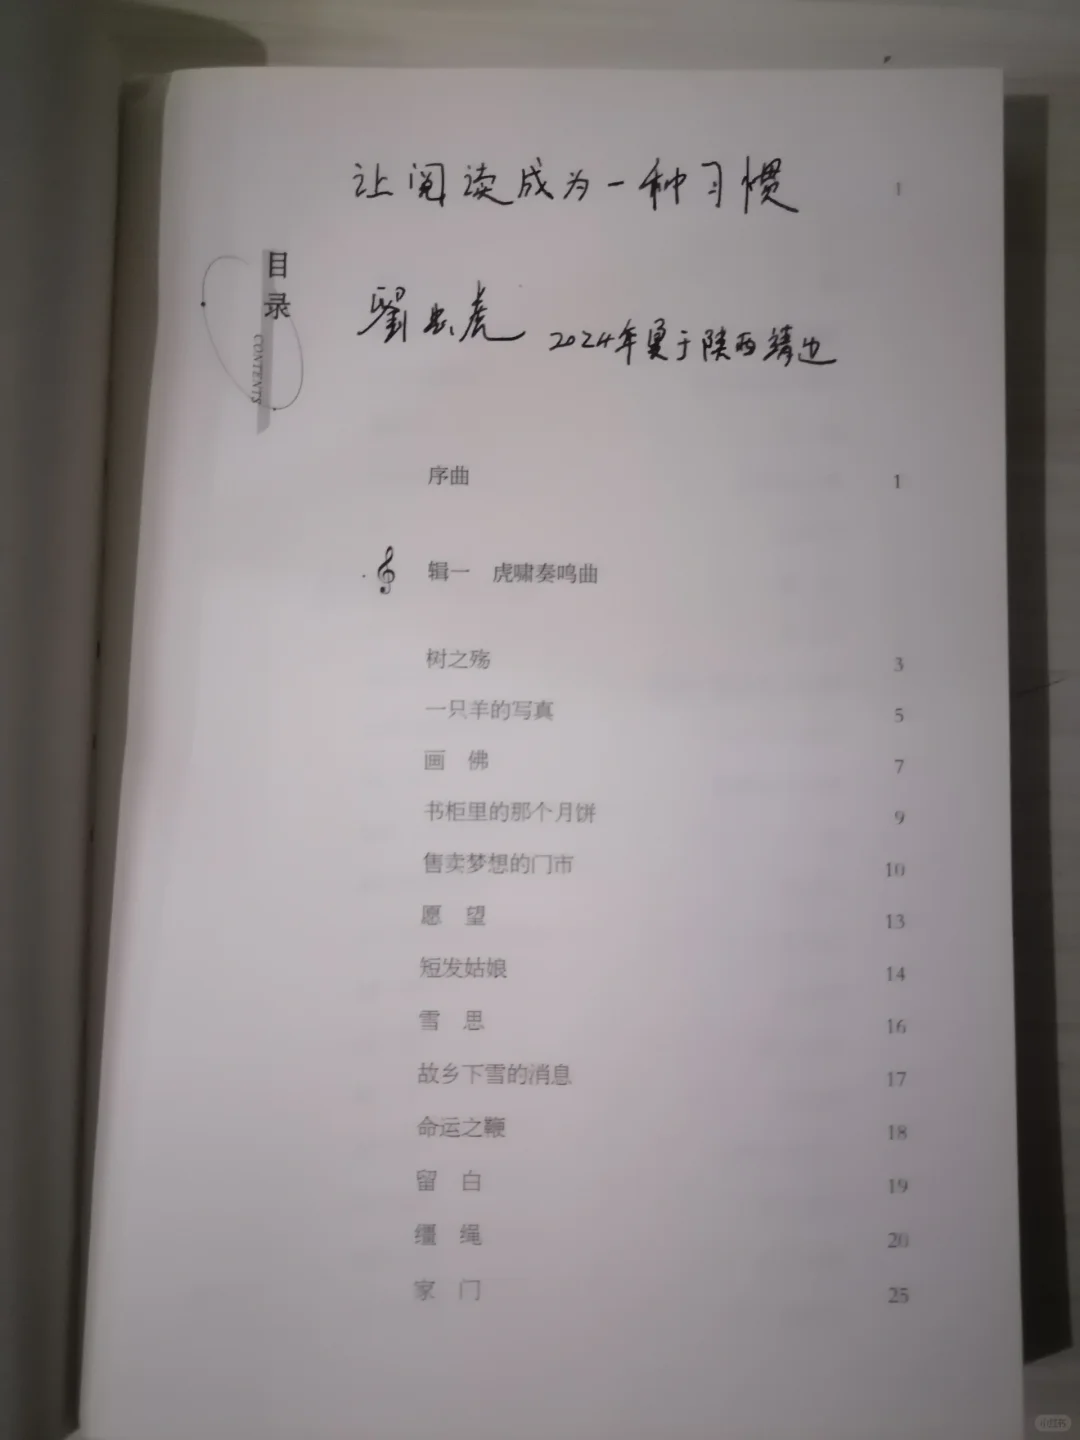 让阅读成为一种习惯
1
目录
CONTENTS
劉忠虎 2024年夏于陕西靖边
序曲 1
辑一 虎啸奏鸣曲
树之殇 3
一只羊的写真 5
画 佛 7
书柜里的那个月饼 9
售卖梦想的门市 10
愿 望 13
短发姑娘 14
雪 思 16
故乡下雪的消息 17
命运之鞭 18
留 白 19
缰 绳 20
家 门 25
小红书